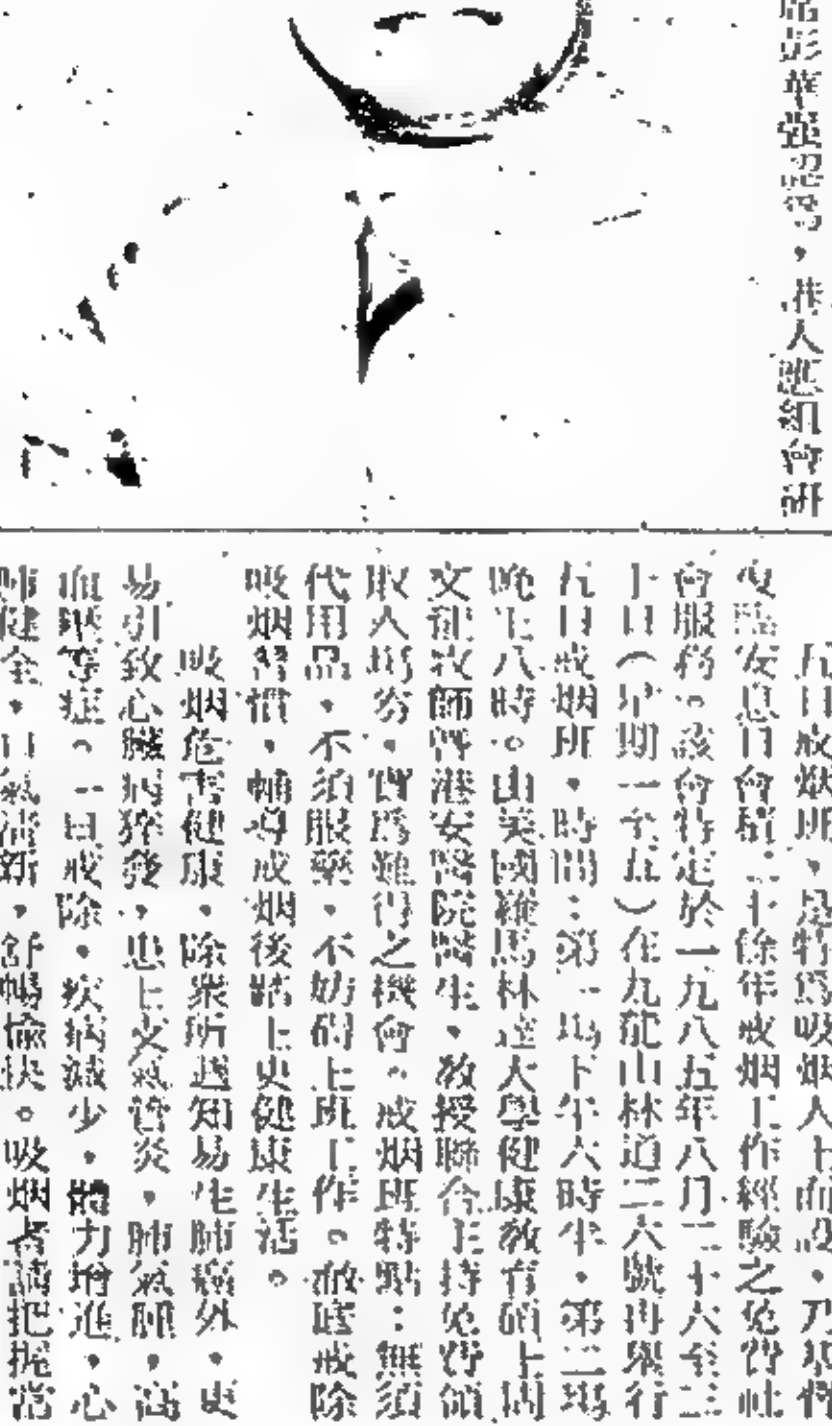 席彭華强認為，港人應組會研
五日戒烟班，是特爲吸烟人士而設，乃基督
復臨安息日會積二十餘年戒烟工作經驗之免費社
會服務。該會特定於一九八五年八月二十六至三
十日（星期一至五）在九龍山林道二六號再舉行
五日戒烟班，時間：第一場下午六時半，第二場
晚上八時。由美國羅馬林達大學健康教育碩士周
文龍牧師暨港安醫院醫生，教授聯合主持免費領
取入場券，實爲難得之機會。戒烟班特點：無須
代用品，不須服藥，不妨碍上班工作。澈底戒除
吸烟習慣，輔導戒烟後踏上更健康生活。
吸烟危害健康，除衆所週知易生肺癌外，更
易引致心臟病猝發，患上支氣管炎，肺氣腫，高
血壓等症。一旦戒除，疾病減少，體力增進，心
肺健全，口氣清新，舒暢愉快。吸烟者請把握當